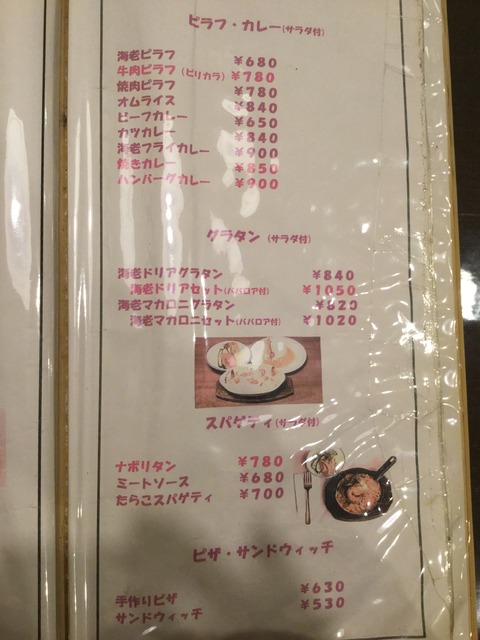 ピラフ・カレー(サラダ付)
海老ピラフ ￥680
牛肉ピラフ(ピリカラ) ￥780
焼肉ピラフ ￥780
オムライス ￥840
ビーフカレー ￥650
カツカレー ￥840
海老フライカレー ￥900
焼きカレー ￥850
ハンバーグカレー ￥900
グラタン(サラダ付)
海老ドリアグラタン ￥840
海老ドリアセット(ババロア付) ￥1050
海老マカロニグラタン ￥820
海老マカロニセット(ババロア付) ￥1020
スパゲティ(サラダ付)
ナポリタン ￥780
ミートソース ￥680
たらこスパゲティ ￥700
ピザ・サンドウィッチ
手作りピザ ￥630
サンドウィッチ ￥530